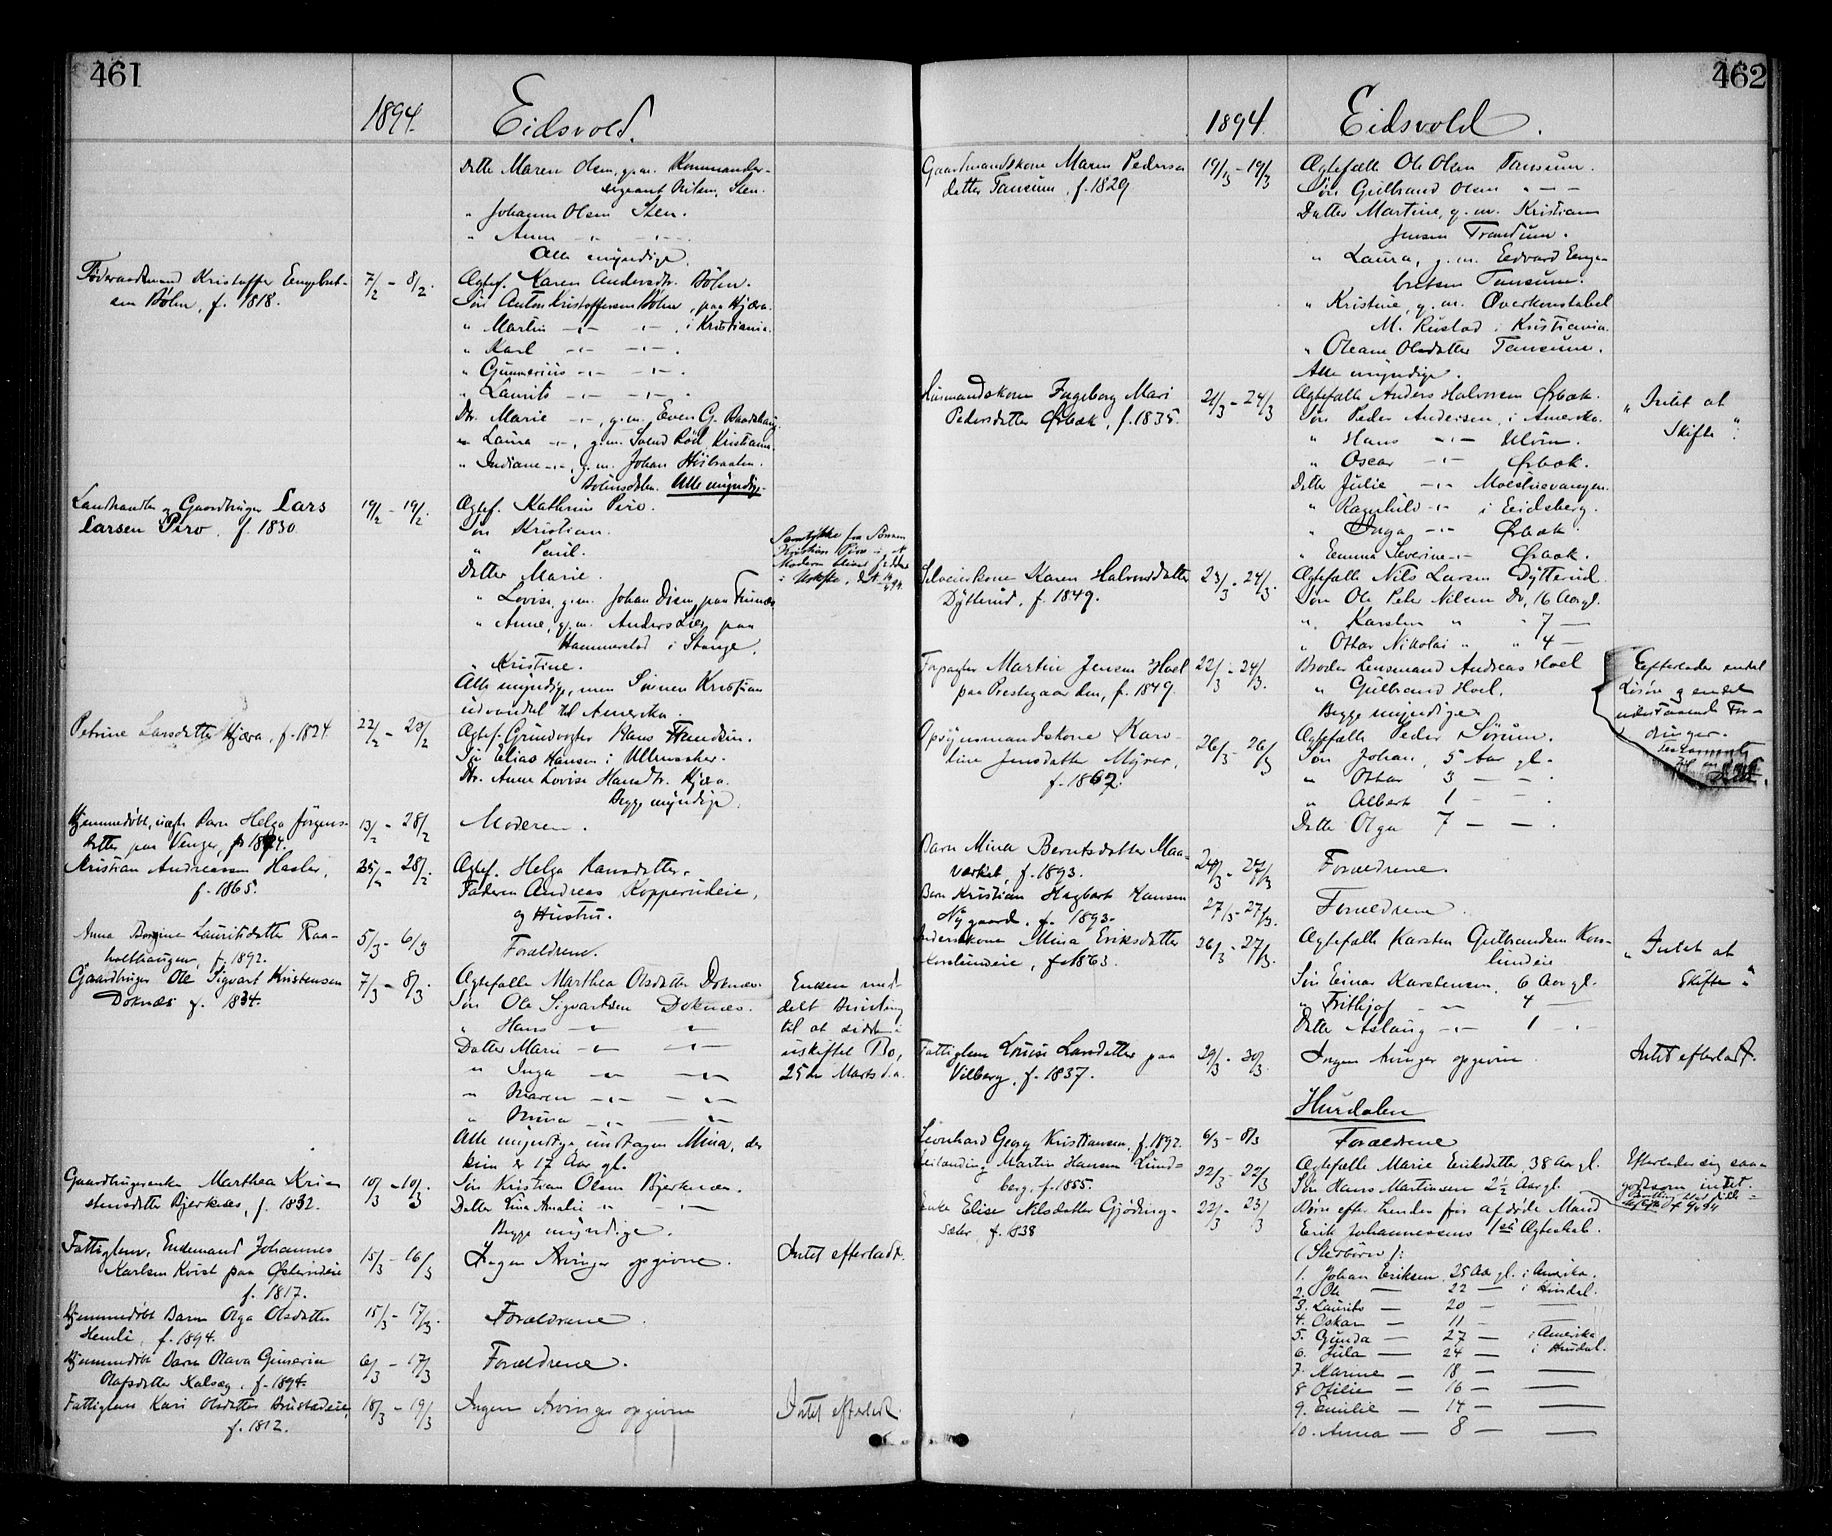 461
1894.
Eidsvold.
Datter Maren Olsen, g.m. Kommander-
sergeant Nilsen, Sten.
" Johanne Olsen Sten.
" Anne -"- -"-.
Alle myndige.
Føderaadsmand Kristoffer Engebret-
sen Bøhn, f. 1818.
7/2 - 8/2.
Ægtef. Karen Andersdtr. Bøhn.
Søn Anton Kristoffersen Bøhn, paa Hjæra.
" Martin -"- -"-, i Kristiania.
" Karl -"- -"-.
" Gunnerius -"- -"-.
" Laurits -"- -"-.
Dtr. Marie -"-, g.m. Even G. Baadshaug.
" Laura -"-, g.m. Svend Röd, Kristiania.
" Indiane -"-, g.m. Johan Høibraaten.
Bøhnsdalen. Alle myndige.
Landhandler og Gaardbruger Lars
Larsen Piro, f. 1830.
19/2 - 19/2.
Ægtef. Kathrine Piro.
Søn Kristian.
" Paul.
Datter Marie.
" Lovise, g.m. Johan Disen, paa Furnæs
" Anne, g.m. Anders Lier, paa
Hammerstad i Stange.
" Kristine.
Alle myndige, men Sønnen Kristian
udvandret til Amerika.
Samtykke fra Sønnen
Kristian Piro i, at
Moderen bliver siddende
i Uskifte, dat.
Petrine Larsdatter Hjæra, f. 1824
22/2 - 23/2
Ægtef. Grundvogter Hans Frandsen.
Søn Elias Hansen i Ullensaker.
Dtr. Anne Lovise Hansdtr. Hjæra.
Begge myndige.
Hjemmedøbt, uægte Barn Helga Jørgens-
datter paa Venger, f. 1894.
13/2 - 28/2
Moderen.
Kristian Andreassen Hasler,
f. 1865.
25/2 - 28/2
Ægtef. Helga Hansdatter.
Faderen Andreas Kopperudeie,
og Hustru.
Anna Borgine Lauritsdatter Raa-
holthaugen, f. 1892.
5/3 - 6/3
Forældrene.
Gaardbruger Ole Sigvart Kristensen
Doknæs f. 1834.
7/3 - 8/3.
Ægtefælle Marthea Olsdatter Doknæs.
Søn Ole Sigvartsen Doknæs.
" Hans -"- -"-
Datter Marie -"- -"-
" Inga -"- -"-
" Maren -"- -"-
" Mina -"- -"-
Alle myndige undtagen Mina, der
kun er 17 Aar gl.
Enken med-
delt Bevilling
til at sidde i
uskiftet Bo,
25de Marts d.a.
Gaardbrugerenke Marthea Kri-
stensdatter Bjerknæs, f. 1832.
10/3 - 10/3
Søn Kristian Olsen Bjerknæs.
Datter Lina Amalie " -"-
Begge myndige.
Fattiglem, Enkemand Johannes
Karlsen Kvist paa Østerudeie
f. 1817.
15/3 - 16/3
Ingen Arvinger opgivne.
Intet efterladt.
Hjemmedøbt Barn Olga Olsdatter
Hemli, f. 1894.
15/3 - 17/3.
Forældrene.
Hjemmedøbt Barn Olava Gunerine
Olafsdatter Kalsæg, f. 1894.
6/3 - 17/3
Forældrene.
Fattiglem Kari Olsdatter Brustadeie,
f. 1812.
18/3 - 19/3
Ingen Arvinger opgivne
Intet efterladt.
462
1894.
Eidsvold.
Gaardmandskone Maren Peders-
datter Tansum, f. 1829
19/3 - 19/3
Ægtefælle Ole Olsen Tansum.
Søn Gulbrand Olsen " - -
Datter Martine, g.m. Kristian
Jensen Trandum.
" Laura, g.m. Edvard Enge-
bretsen Tansum.
" Kristine, g.m. Overkonstabel
M. Rustad i Kristiania.
" Oleane Olsdatter Tansum.
Alle myndige.
Husmandskone Ingeborg Mari
Pedersdatter Ørbæk, f. 1835.
21/3 - 24/3
Ægtefælle Anders Halvorsen Ørbæk.
Søn Peder Andersen, i Amerika.
" Hans -"- Ulvin.
" Oscar -"- Ørbæk.
Datter Julie -"- Moestuevangen.
" Ragnhild -"- i Eidsberg.
" Inga -"- Ørbæk.
" Emma Severine -"- Ørbæk.
" Intet at
Skifte ".
Selveierkone Karen Halvorsdatter
Dytterud, f. 1849.
23/3 - 24/3.
Ægtefælle Nils Larsen Dytterud.
Søn Ole Peter Nilsen Do, 16 Aar gl.
" Karsten " " 7 —
" Ottar Nikolai " " 4 —
Forpagter Martin Jensen Hoel
paa Prestegaarden, f. 1849.
22/3 - 24/3.
Broder Lensmand Andreas Hoel
" Gulbrand Hoel.
Begge myndige
Efterlader endel
Løsøre og endel
udestaaende For-
dringer.
Testamente
Opsynsmandskone Karo-
line Jensdatter Myrer,
f. 1862.
26/3 - 26/3
Ægtefælle Peder Sørum.
Søn Johan, 5 Aar gl.
" Othar 3 — —.
" Albert 1 — —.
Datter Olga 7 — —.
Barn Mina Berntsdatter Maa-
værket, f. 1893.
24/3 - 27/3
Forældrene.
Barn Kristian Hagbart Hansen
Nygaard, f. 1893.
27/3 - 27/3.
Forældrene.
Inderstkone Mina Eriksdatter
Korslundeie, f. 1863.
26/3 - 27/3.
Ægtefælle Karsten Gulbrandsen Kors-
lundeie
Søn Einar Karstensen, 6 Aar gl.
" Frithjof -"- 4 —
Datter Aslaug -"- 1 .
" Intet at
Skifte "
Fattiglem Lovise Larsdatter paa
Vilberg, f. 1837.
29/3 - 30/3.
Ingen Arvinger opgivne.
Intet efterladt.
Hurdalen
Leonhard Georg Kristiansen, f. 1892.
6/3 - 8/3
Forældrene
Martin Hansen Lund-
berg, f. 1855.
22/3 - 22/3
Ægtefælle Marie Eriksdatter, 38 Aar gl.
Søn Hans Martinsen 2½ Aar gl.
Efterlader sig saa-
godtsom intet.
Enke Elise Nilsdatter Gjøding-
sæter, f. 1838
22/3 - 23/3
Børn efter hendes før afdøde Mand
Erik Johannessens 1ste Ægteskab.
(Stedbørn):
1. Johan Eriksen, 25 Aar gl. i Amerika.
2. Ole — 22 — i Hurdal.
3. Laurits — 20 — —
4. Oskar — 11 — —
5. Gunda — 27 — i Amerika
6. Jula — 24 — i Hurdal.
7. Marine — 18 — —
8. Otilie — 16 — —
9. Emilie — 14 — —
10. Anna — 8 — —